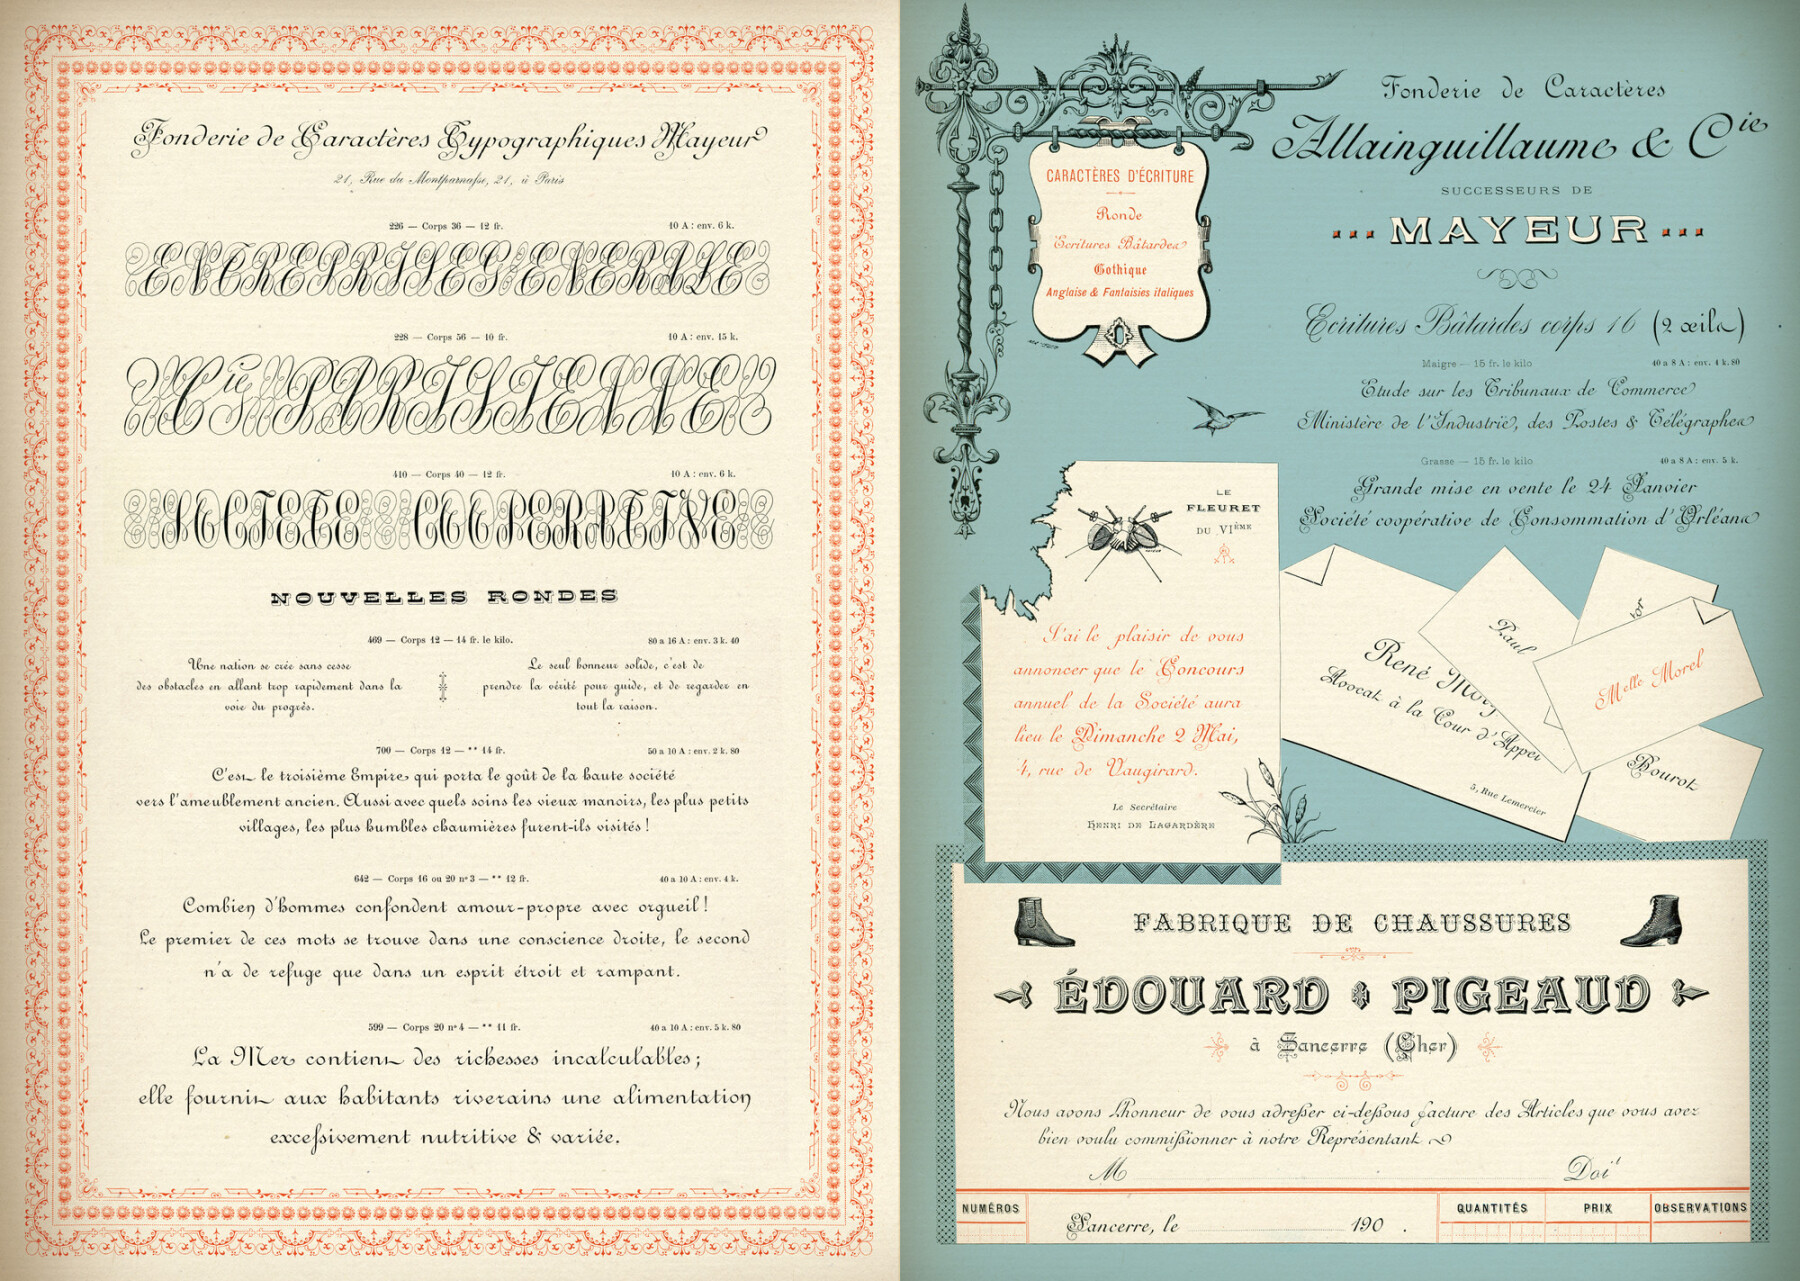 Fonderie de Caractères Typographiques Mayeur
21, Rue du Montparnaſse, 21, à Paris
226 — Corps 36 — 12 fr. 10 A : env. 6 k.
ENTREPRISE GENERALE
228 — Corps 56 — 10 fr. 10 A : env. 15 k.
PARISIENNE
410 — Corps 40 — 12 fr. 10 A : env. 6 k.
SOCIETE COOPERATIVE
NOUVELLES RONDES
469 — Corps 12 — 14 fr. le kilo. 80 a 16 A : env. 3 k. 40
Une nation se crée sans cesse
des obstacles en allant trop rapidement dans la
voie du progrès.
Le seul honneur solide, c'est de
prendre la vérité pour guide, et de regarder en
tout la raison.
700 — Corps 12 — " 14 fr. 50 a 10 A : env. 2 k. 80
C'est le troisième Empire qui porta le goût de la haute société
vers l'ameublement ancien. Aussi avec quels soins les vieux manoirs, les plus petits
villages, les plus humbles chaumières furent-ils visités !
642 — Corps 16 ou 20 nº 3 — " 12 fr. 40 a 10 A : env. 4 k.
Combien d'hommes confondent amour-propre avec orgueil !
Le premier de ces mots se trouve dans une conscience droite, le second
n'a de refuge que dans un esprit étroit et rampant.
599 — Corps 20 nº 4 — " 11 fr. 40 a 10 A : env. 5 k. 80
La Mer contient des richesses incalculables ;
elle fournit aux habitants riverains une alimentation
exceſsivement nutritive & variée.
CARACTÈRES D'ÉCRITURE
Ronde
Ecritures Bâtardes
Gothique
Anglaise & Fantaisies italiques
Fonderie de Caractères
Allainguillaume & Cie
SUCCESSEURS DE
MAYEUR
Ecritures Bâtardes corps 16 (2 œils)
Maigre — 15 fr. le kilo 40 a 8 A : env. 4 k. 80
Etude sur les Tribunaux de Commerce
Ministère de l'Industrie, des Postes & Télégraphes
Grasse — 15 fr. le kilo 40 a 8 A : env. 5 k.
Grande mise en vente le 24 Janvier
Société coopérative de Consommation d'Orléans
LE
FLEURET
DU VIÈME
J'ai le plaisir de vous
annoncer que le Concours
annuel de la Société aura
lieu le Dimanche 2 Mai,
4, rue de Vaugirard.
Le Secrétaire
HENRI DE LAGARDÈRE
René
Avocat à la Cour d'Appel
5, Rue Lemercier
Paul
Melle Morel
Bourot
FABRIQUE DE CHAUSSURES
ÉDOUARD PIGEAUD
à Sancerre (Cher)
Nous avons l'honneur de vous adreſser ci-deſsous facture des Articles que vous avez
bien voulu commiſsionner à notre Représentant
M Doit
NUMÉROS Sancerre, le 190 . QUANTITÉS PRIX OBSERVATIONS